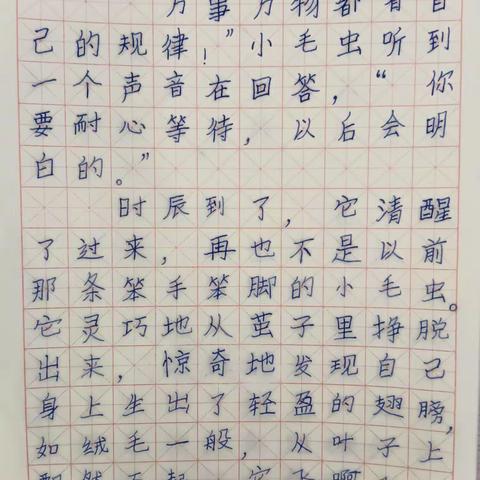 万事万物都有自
己的规律!”小毛虫听到
一个声音在回答，“你
要耐心等待，以后会明
白的。”
时辰到了，它清醒
了过来，再也不是以前
那条笨手笨脚的小毛虫。
它灵巧地从茧子里挣脱
出来，惊奇地发现自己
身上生出了轻盈的翅膀，
如绒毛一般，从叶子上